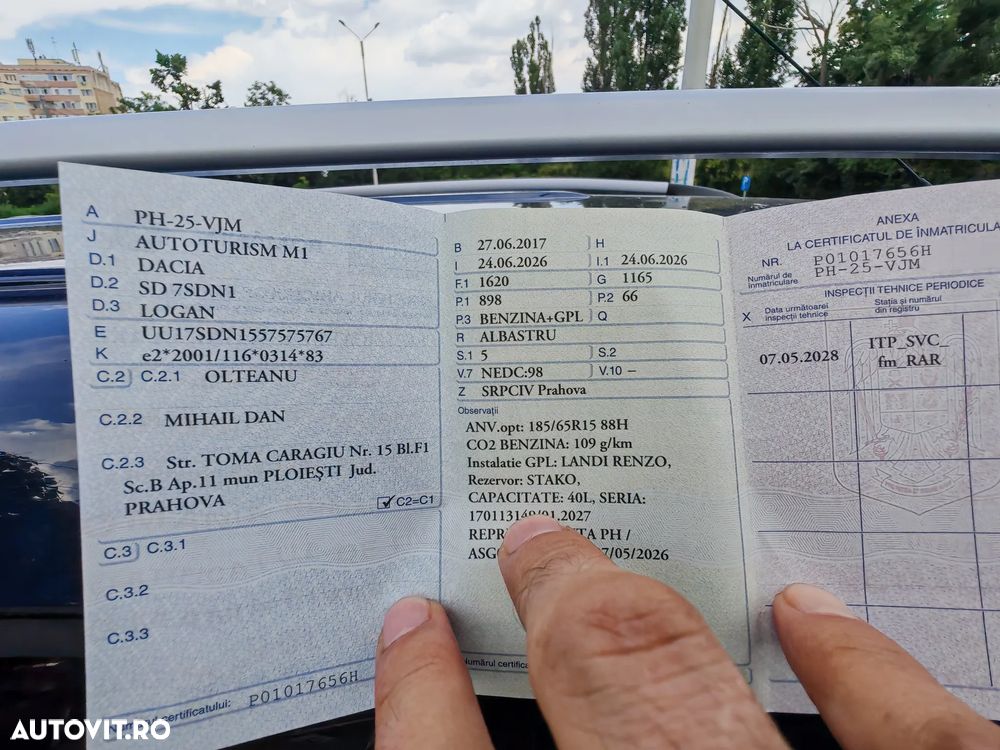 A PH-25-VJM
J AUTOTURISM M1
D.1 DACIA
D.2 SD 7SDN1
D.3 LOGAN
E UU17SDN1557575767
K e2*2001/116*0314*83
C.2 C.2.1 OLTEANU
C.2.2 MIHAIL DAN
C.2.3 Str. TOMA CARAGIU Nr. 15 Bl.F1
Sc.B Ap.11 mun PLOIEȘTI Jud.
PRAHOVA
C2=C1
C.3 C.3.1
C.3.2
C.3.3
certificatului: P01017656H
B 27.06.2017 H
I 24.06.2026 I.1 24.06.2026
F.1 1620 G 1165
P.1 898 P.2 66
P.3 BENZINA+GPL Q
R ALBASTRU
S.1 5 S.2
V.7 NEDC:98 V.10 –
Z SRPCIV Prahova
Observații
ANV.opt: 185/65R15 88H
CO2 BENZINA: 109 g/km
Instalatie GPL: LANDI RENZO,
Rezervor: STAKO,
CAPACITATE: 40L, SERIA:
PH /
/05/2026
Numărul
ANEXA
LA CERTIFICATUL DE ÎNMATRICULA
NR. P01017656H
Numărul de înmatriculare PH-25-VJM
INSPECȚII TEHNICE PERIODICE
X Data următoarei inspecții tehnice Stația și numărul din registru
07.05.2028 ITP_SVC_
fm_RAR
AUTOVIT.RO